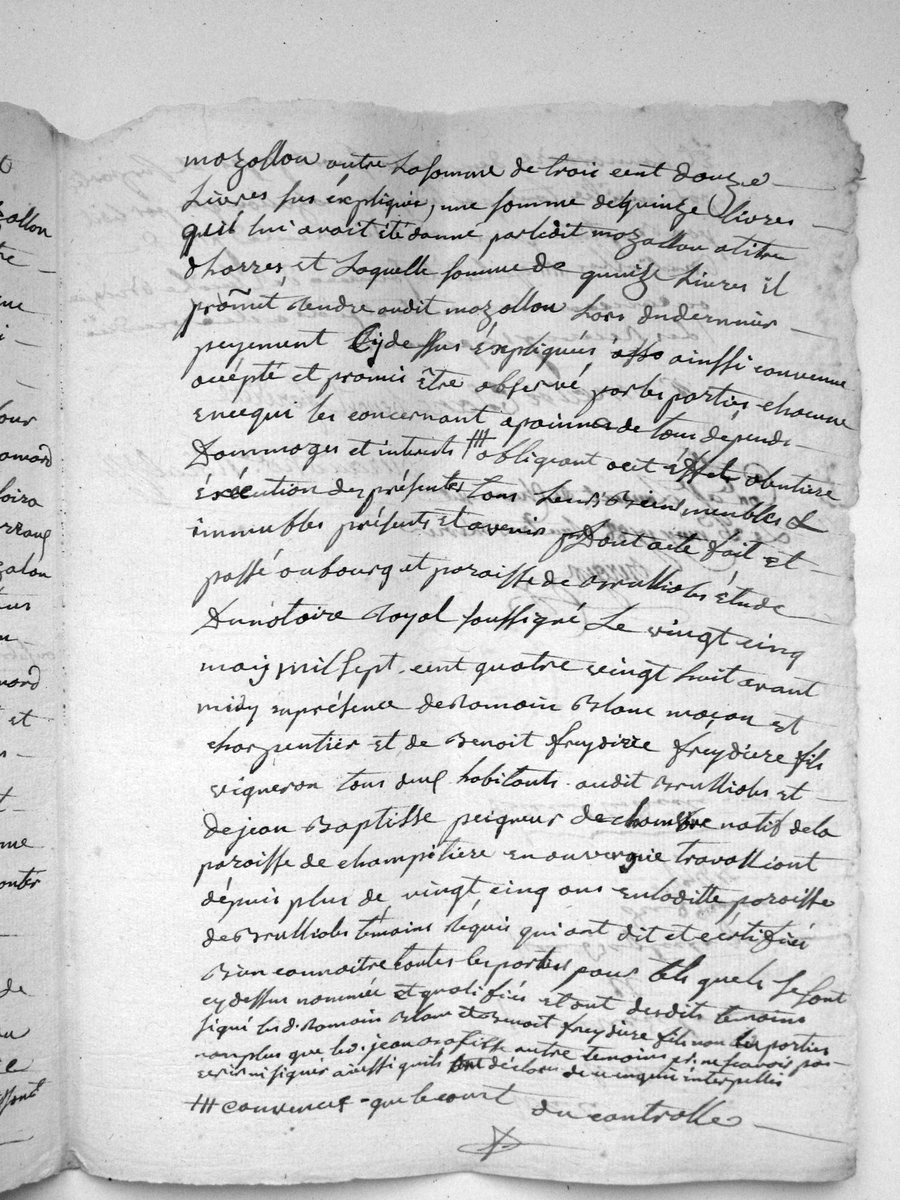 mozallon outre la somme de trois cent douze
Livres sus éxpliquée, une somme de quinze livres
qu'il lui avait été donné par ledit mozallon a titre
dharres et laquelle somme de quinze livres il
promêt rendre audit mozallon lors du dernier
peyement Cy dessus éxpliqués ainssi convenu
accépté et promis être observé par les parties chacune
en ce qui les concernant a painne de tous dépends
Dommages et interets # obligeant a cet éffet
éxécution des présentes tous leurs biens meubles &
immeubles présents et avenir Dont acte fait et
passé au bourg et paroisse de Brulliolés étude
Du notaire Royal soussigné Le vingt cinq
may mil sept cent quatre vingt huit avant
midy en présence de Romain Blanc maçon et
charpentier et de Benoit freydiere fils
vigneron tous deux habitants audit Brulliolés et
de jean Baptisse peigneur de chanvre natif de la
paroisse de champétiere en auvergnie travalliont
dépuis plus de vingt cinq ans en laditte paroisse
de Brulliolés témoins Requis qui ont dit et cértifiés
Bien connaitre toutes les parties pour tels quels se sont
cy dessus nommée et qualifiés et ont desdits temoins
signé les d. Romain Blanc et Benoit freydiere fils non les parties
non plus que led. jean Batisse autre temoins p. ne scavoir pas
ecrire ni signer ainssi quils ont déclarés de ce enquis interpellés
# convenus que le cout du controlle